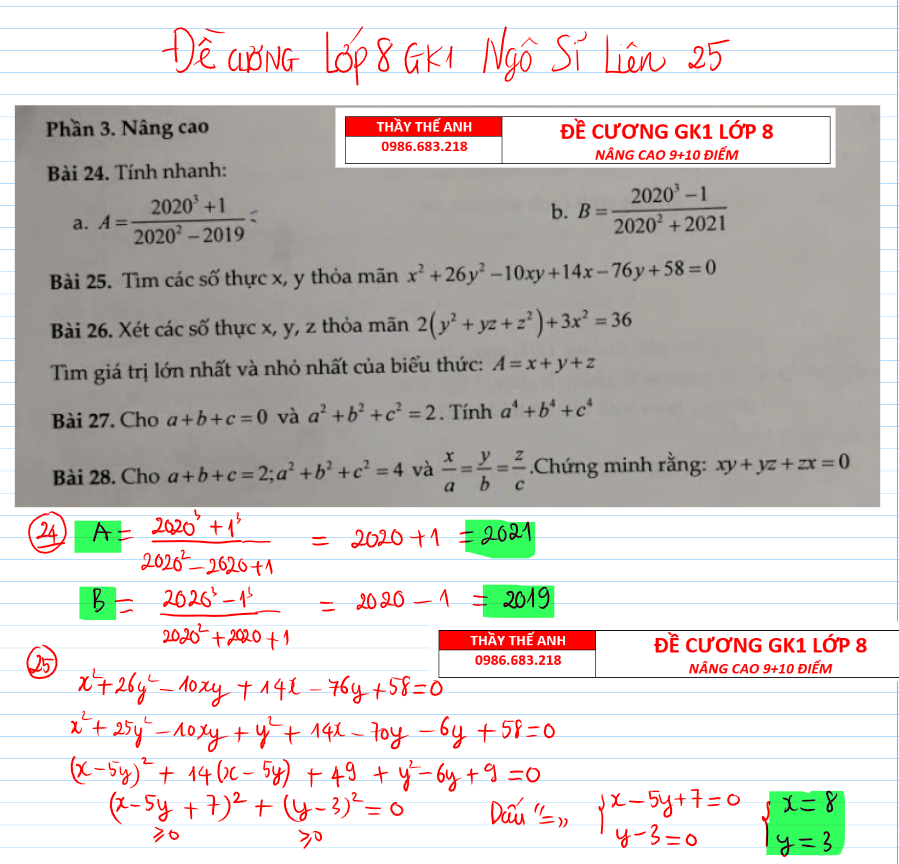 ĐỀ CƯƠNG LỚP 8 GK1 NGÔ SĨ LIÊN 25
Phần 3. Nâng cao
THẦY THẾ ANH
0986.683.218
ĐỀ CƯƠNG GK1 LỚP 8
NÂNG CAO 9+10 ĐIỂM
Bài 24. Tính nhanh:
a. A = (2020³ + 1)/(2020² − 2019) b. B = (2020³ − 1)/(2020² + 2021)
Bài 25. Tìm các số thực x, y thỏa mãn x² + 26y² − 10xy + 14x − 76y + 58 = 0
Bài 26. Xét các số thực x, y, z thỏa mãn 2(y² + yz + z²) + 3x² = 36
Tìm giá trị lớn nhất và nhỏ nhất của biểu thức: A = x + y + z
Bài 27. Cho a + b + c = 0 và a² + b² + c² = 2. Tính a⁴ + b⁴ + c⁴
Bài 28. Cho a + b + c = 2; a² + b² + c² = 4 và x/a = y/b = z/c. Chứng minh rằng: xy + yz + zx = 0
24 A = (2020³ + 1³)/(2020² − 2020 + 1) = 2020 + 1 = 2021
B = (2020³ − 1³)/(2020² + 2020 + 1) = 2020 − 1 = 2019
THẦY THẾ ANH
0986.683.218
ĐỀ CƯƠNG GK1 LỚP 8
NÂNG CAO 9+10 ĐIỂM
25
x² + 26y² − 10xy + 14x − 76y + 58 = 0
x² + 25y² − 10xy + y² + 14x − 70y − 6y + 58 = 0
(x − 5y)² + 14(x − 5y) + 49 + y² − 6y + 9 = 0
(x − 5y + 7)² + (y − 3)² = 0 Dấu "=" { x − 5y + 7 = 0 { x = 8
≥0 ≥0 y − 3 = 0 y = 3